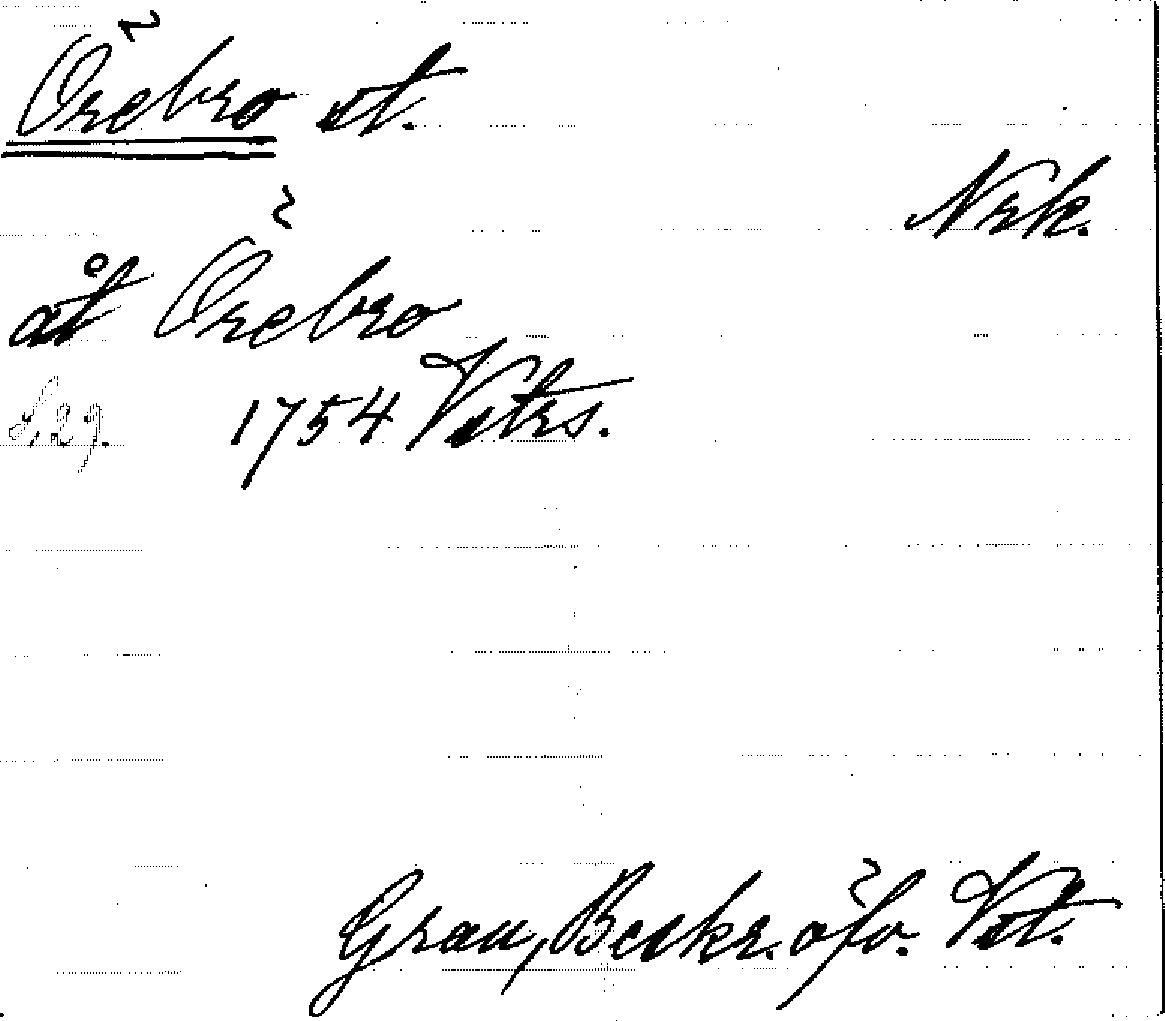 Örebro st.
Nrk.
åt Örebro
S. 29. 1754 Vstrs.
Grau, Beskr. öfv. Vst.